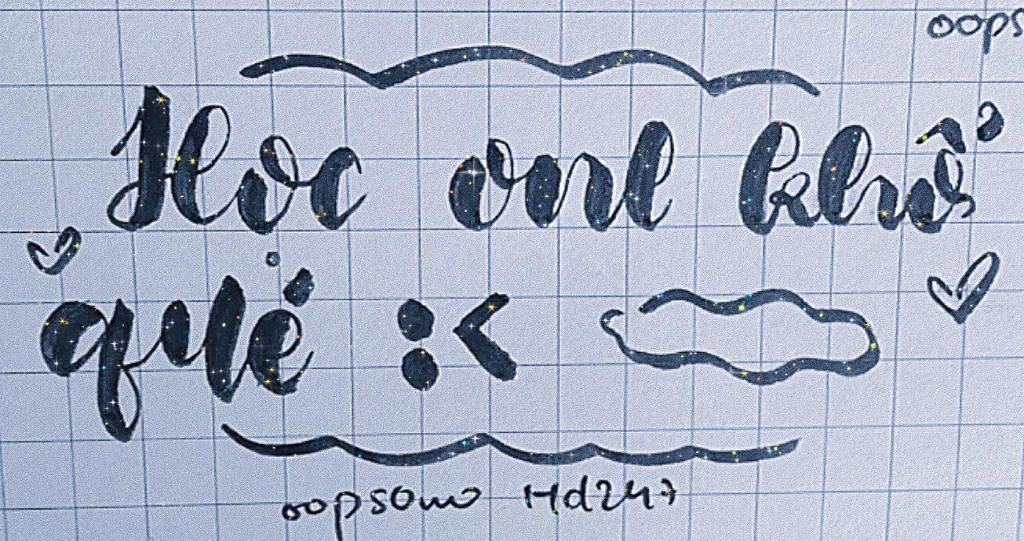 oops
Học onl khổ
qué :<
oopsOmo Hd247